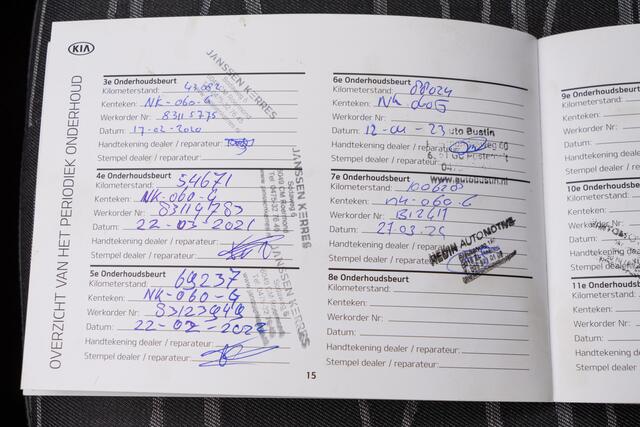 KIA
OVERZICHT VAN HET PERIODIEK ONDERHOUD
3e Onderhoudsbeurt
Kilometerstand: 43.082
Kenteken: NK-060-G
Werkorder Nr: 83115775
Datum: 17-02-2020
Handtekening dealer / reparateur:
Stempel dealer / reparateur:
JANSSEN KERRES
4e Onderhoudsbeurt
Kilometerstand: 54671
Kenteken: NK-060-G
Werkorder Nr: 83114783
Datum: 22-03-2021
Handtekening dealer / reparateur:
Stempel dealer / reparateur:
JANSSEN KERRES
5e Onderhoudsbeurt
Kilometerstand: 69237
Kenteken: NK-060-G
Werkorder Nr: 83123949
Datum: 22-02-2022
Handtekening dealer / reparateur:
Stempel dealer / reparateur:
JANSSEN KERRES
15
6e Onderhoudsbeurt
Kilometerstand: 88024
Kenteken: NK 060G
Werkorder Nr:
Datum: 12-01-23
Handtekening dealer / reparateur:
Stempel dealer /
uto Bustin
www.autobustin.nl
7e Onderhoudsbeurt
Kilometerstand: 100620
Kenteken: NK-060-G
Werkorder Nr:
Datum: 27.03.24
Handtekening dealer / reparateur:
Stempel dealer / reparateur:
HEDIN AUTOMOTIVE
8e Onderhoudsbeurt
Kilometerstand:
Kenteken:
Werkorder Nr:
Datum:
Handtekening dealer / reparateur:
Stempel dealer / reparateur:
9e Onderhoudsbeurt
Kilometerstand:
Kenteken:
Werkorder Nr:
Datum:
Handtekening
Stempel dealer
10e Onderhoudsbeurt
Kilometerstand:
Kenteken:
Werkorder Nr:
Datum:
Handtekening
Stempel dealer
11e Onderhoudsbeurt
Kilometerstand:
Kenteken:
Werkorder Nr:
Datum:
Handtekening
Stempel dealer